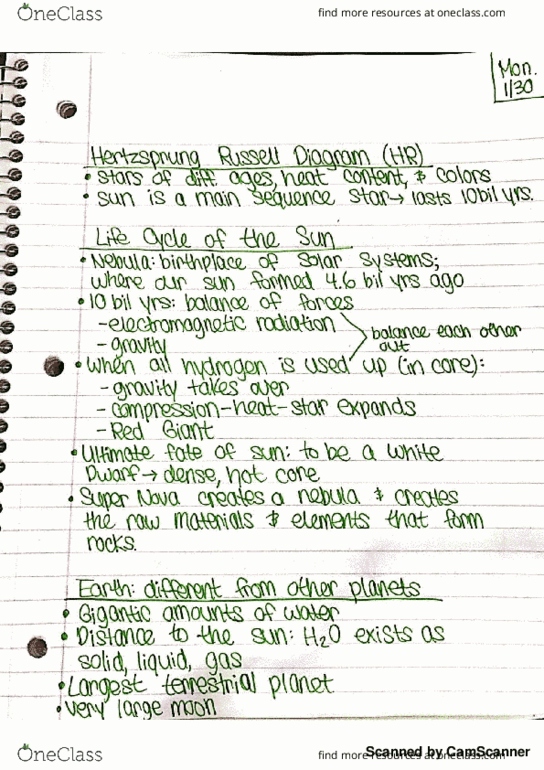 OneClass
find more resources at oneclass.com
Mon.
1/30
Hertzsprung Russell Diagram (HR)
• stars of diff. ages, heat content, & colors
• sun is a main sequence star → lasts 10bil yrs.
Life Cycle of the Sun
• Nebula: birthplace of solar systems;
where our sun formed 4.6 bil yrs ago
• 10 bil yrs: balance of forces
- electromagnetic radiation
- gravity
balance each other
out
• When all hydrogen is used up (in core):
- gravity takes over
- compression-heat-star expands
- Red Giant
• Ultimate fate of sun: to be a white
Dwarf → dense, hot core
• Super Nova creates a nebula & creates
the raw materials & elements that form
rocks.
Earth: different from other planets
• Gigantic amounts of water
• Distance to the sun: H₂O exists as
solid, liquid, gas
• Largest terrestrial planet
• very large moon
OneClass
find more resources at oneclass.com
Scanned by CamScanner